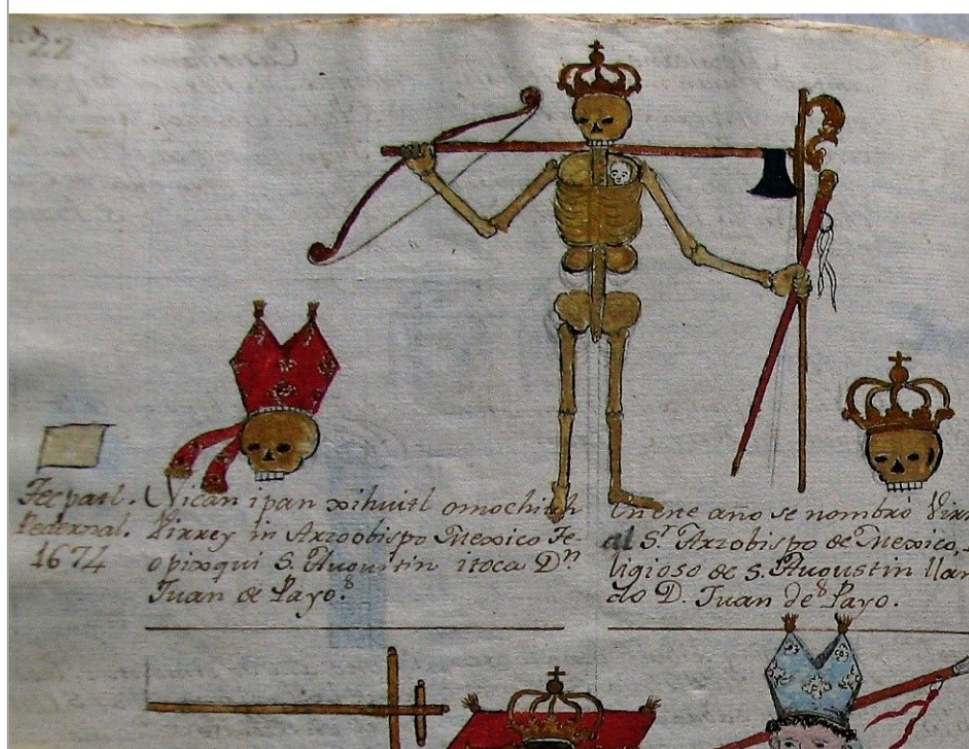 22
Tecpatl.
Pedernal.
1674
Nican ipan xihuitl omochiuh
Virrey in Arzoobispo Mexico Te-
opixqui S. Augustin itoca Dⁿ
Juan de Payo.⁸
En ene año se nombro Virr
al Sʳ Arzobispo de Mexico,
ligioso de S. Augustin llam
do D. Juan de⁸ Payo.